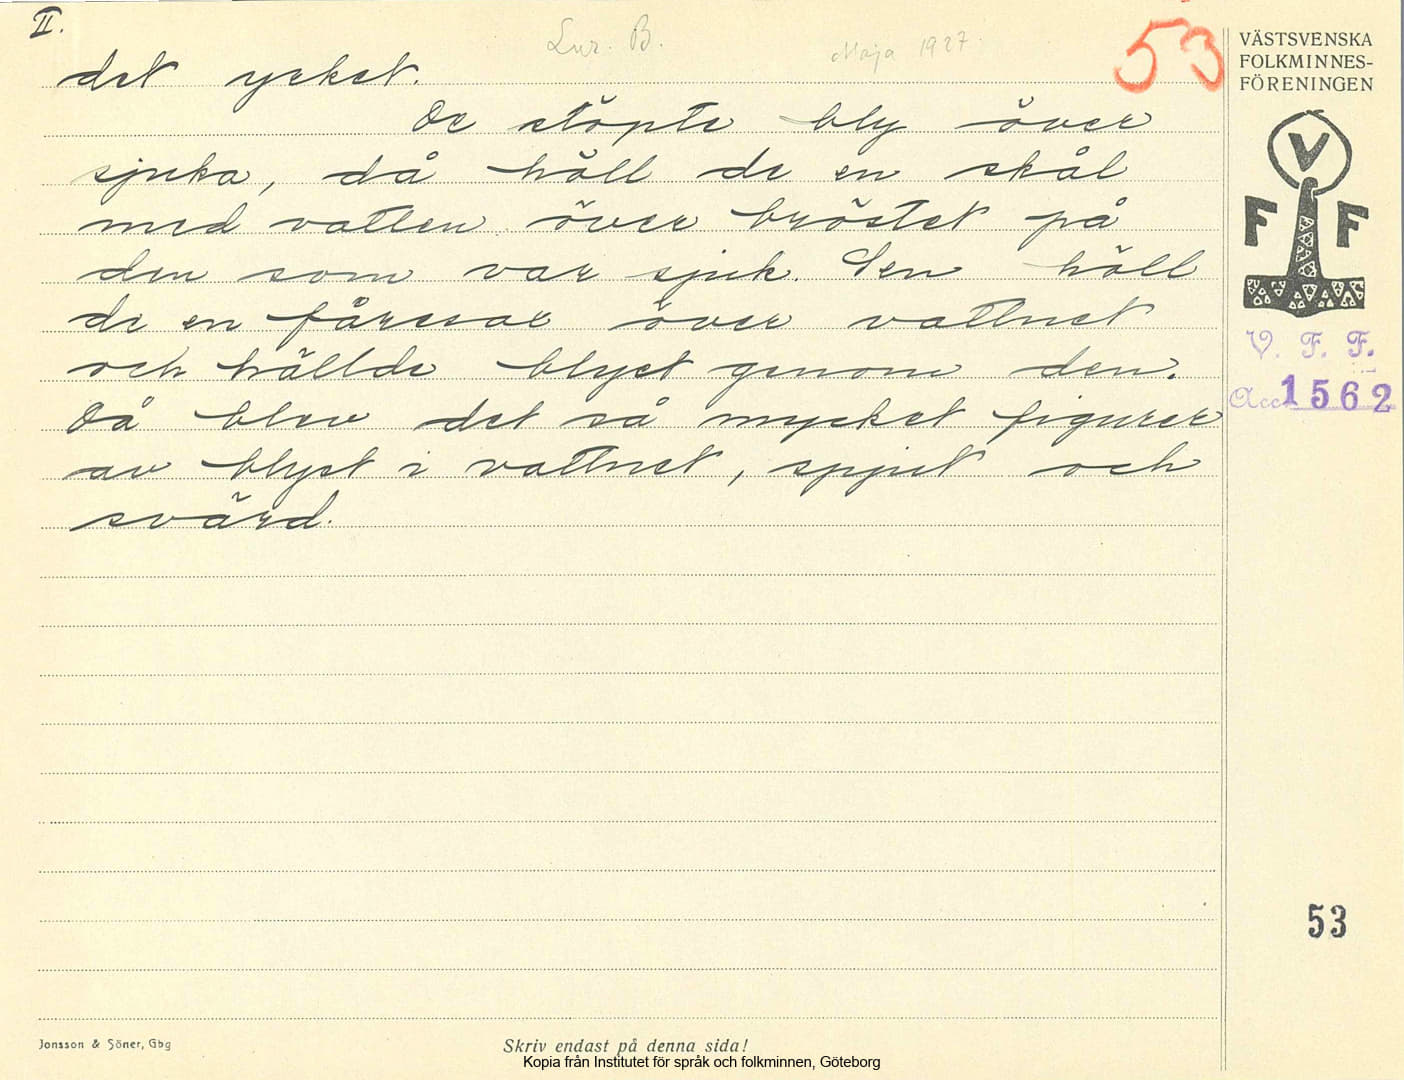 II.
Lur. B.
Maja 1927.
53
VÄSTSVENSKA
FOLKMINNES-
FÖRENINGEN
V
F F
V. F. F.
Acc. 1562
det ycket.
De stöpte bly över
sjuka, då höll de en skål
med vatten över bröstet på
den som var sjuk. Sen höll
de en fåresax över vattnet
och hällde blyet genom den.
Då blev det så mycket figurer
av blyet i vattnet, spjut och
svärd.
53
Jonsson & Söner, Gbg
Skriv endast på denna sida!
Kopia från Institutet för språk och folkminnen, Göteborg